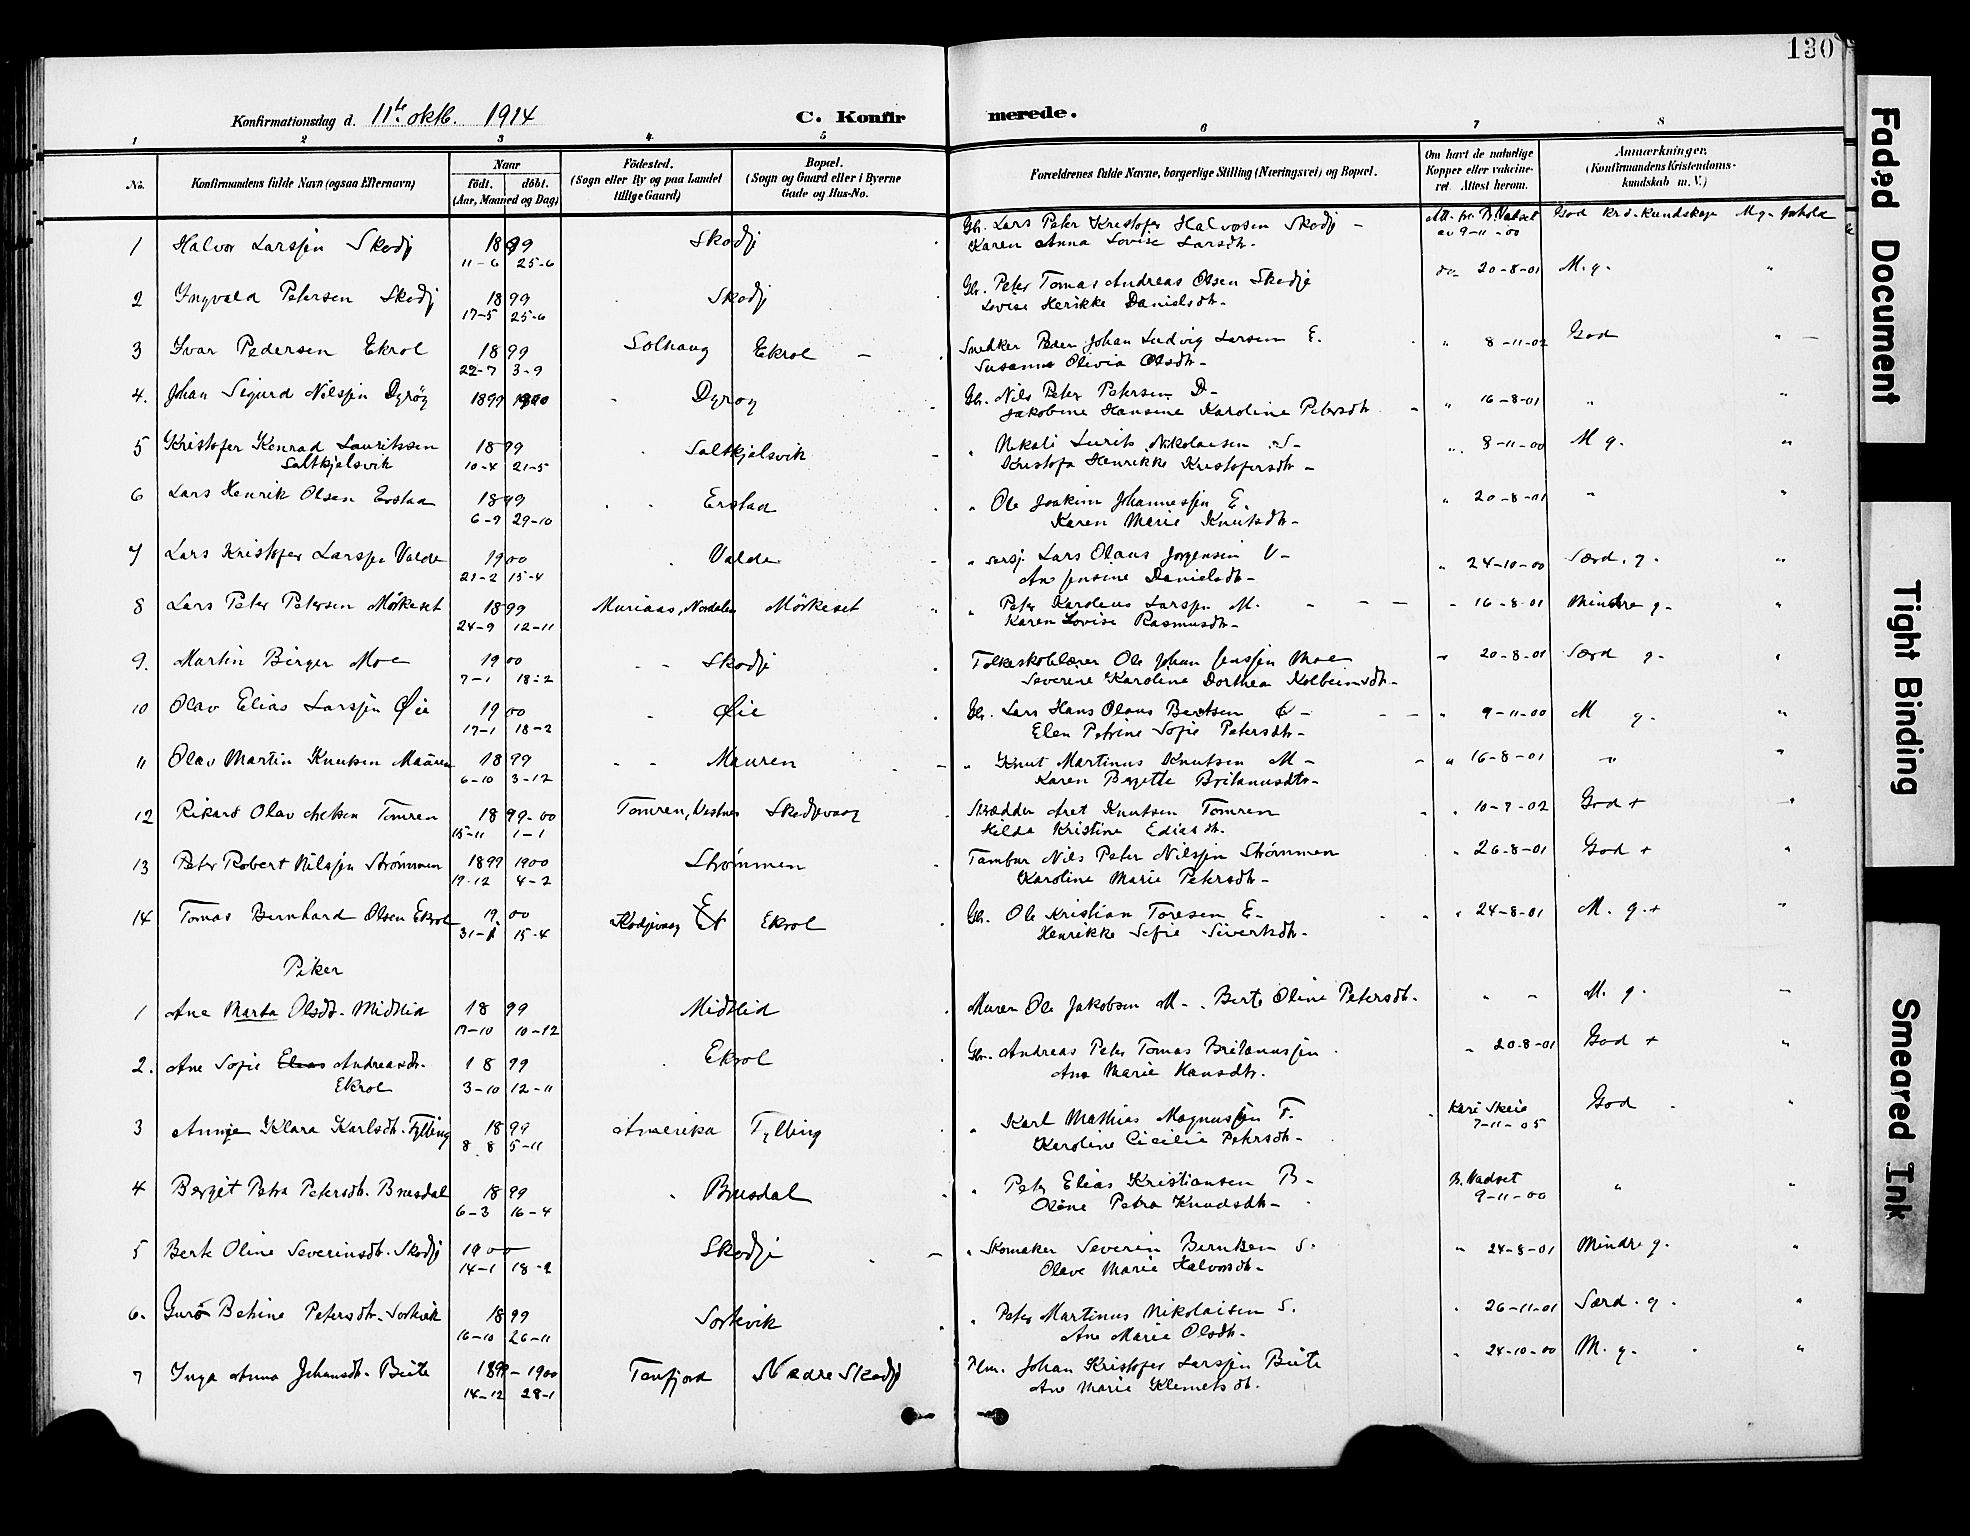 130
Konfirmationsdag d. 11te oktb. 1914
C. Konfirmerede.
1 2 3 4 5 6 7 8
No.
Konfirmandens fulde Navn (ogsaa Efternavn)
Naar
födt. döbt.
(Aar, Maaned og Dag)
Födested.
(Sogn eller By og paa Landet
tillige Gaard)
Bopæl.
(Sogn og Gaard eller i Byerne
Gade og Hus-No.
Forældrenes fulde Navne, borgerlige Stilling (Næringsvei) og Bopæl.
Om havt de naturlige
Kopper eller vakcine-
ret. Attest herom.
Anmærkninger.
(Konfirmandens Kristendoms-
kundskab m. V.)
1 Halvor Larssen Skodj 1899 11-6 25-6 Skodj
Gbr. Lars Peter Kristofer Halvorsen Skodj -
Karen Anna Lovise Larsdtr.
Att. fra B. Vadset
av 9-11-00
God krd. kundskap M g. forhold
2 Ingvald Petersen Skodj 1899 17-5 25-6 Skodj
Gbr. Peter Tomas Andreas Olsen Skodje
Lovise Herikke Danielsdtr.
do 20-8-01 M. g. "
3 Ivar Pedersen Ekrol 1899 22-7 3-9 Solhaug Ekrol
Snedker Peder Johan Ludvig Larsen E.
Susanna Olivia Olsdtr-
" 8-11-02 God "
4. Johan Sigurd Nilssen Dyröy 1899 1900 Dyröy
Gbr. Nils Peter Petersen D-
Jakobine Hansine Karoline Petersdtr
" 16-8-01 " "
5 Kristofer Konrad Lauritssen
Saltkjelsvik 1899 10-4 21-5 Saltkjelsvik
" Nikolai Lurits Nikolaisen S-
Kristofa Henrikke Kristofersdtr -
" 8-11-00 M g. "
6 Lars Henrik Olsen Erstad 1899 6-9 29-10 Erstad
" Ole Joakim Johannessen E.
Karen Marie Knutsdtr-
" 20-8-01 " "
7 Lars Kristofer Larssen Valde 1900 21-2 15-4 Valde
" Lars Olaus Jörgensen V-
Ane Jensine Danielsdtr-
" 24-10-00 Særd. g. "
8 Lars Peter Petersen Mörkeset 1899 24-9 12-11 Muriaas, Nordalen Mörkeset
" Peter Karolus Larssen M.
Karen Lovise Rasmusdtr-
" 16-8-01 Mindre g- "
9. Martin Birger Moe 1900 7-1 18-2 Skodje
Folkeskolelærer Ole Johan Jenssen Moe
Severine Karoline Dorthea Kolbeinsdtr-
" 20-8-01 Særd g- "
10 Olav Elias Larssen Øie 1900 17-1 18-2 Øie
Gbr. Lars Hans Olaus Berntsen Ø-
Elen Petrine Sofie Petersdtr-
" 9-11-00 M g. "
11 Olav Martin Knutsen Maüren 1899 6-10 3-12 Mauren
" Knut Martinus Knutsen M-
Karen Bergitte Britanusdtr-
" 16-8-01 " "
12 Rikard Olav Tomren 1899-00 15-11 1-1 Tomren, Vestnes Skodjevaag
Skrædder Aret Knutsen Tomren
Hilda Kristine Eliasdt.
" 10-7-02 God + "
13 Peter Robert Nilssen Strömmen 1899 1900 19-12 4-2 Strömmen
Tambur Nils Peter Nilssen Strömmen
Karoline Marie Petersdtr-
" 26-8-01 God + "
14 Tomas Bernhard Olsen Ekrol 1900 31-1 15-4 Skodjevaag Ekrol
Gbr. Ole Kristian Toresen E-
Henrikke Sofie Sivertsdtr-
" 24-8-01 M. g.+ "
Piker
1 Ane Marta Olsdtr. Midtlid 1899 17-10 10-12 Midtlid
Murer Ole Jakobsen M-. Berte Oline Petersdtr-
" " M. g. "
2. Ane Sofie Andreasdtr.
Ekrol 1899 3-10 12-11 Ekrol
Gbr. Andreas Peter Tomas Britanussen
Ane Marie Hansdtr.
" 20-8-01 God + "
3 Annje Klara Karlsdtr. Fylling 1899 8.8 5-11 Amerika Fylling
" Karl Mathias Magnussen F.
Karoline Cicilie Petersdtr-
Kari Skeie
7-11-05 God "
4 Bergit Petra Petersdtr. Brusdal 1899 6-3 16-4 Brusdal
" Peter Elias Kristiansen B-
Oline Petra Knudsdtr-
B. Vadset
9-11-00 " "
5 Berte Oline Severinsdtr. Skodj 1900 14-1 18-2 Skodje
" Skomaker Severin Berntsen S.
Olave Marie Halvorsdtr-
" 24-8-01 Mindre g. "
6. Guro Betine Petersdtr. Sortevik 1899 16-10 26-11 Sortevik
" Peter Martinus Nikolaisen S.
Ane Marie Olsdtr-
" 26-11-01 Særd. g. "
7 Inga Anna Johansdtr. Brüte 1899-1900 14-12 28-1 Tenfjord Nedre Skodj
Plm. Johan Kristofer Larssen Brüte
Ane Marie Klemetsdt.
" 24-10-00 M. g. "
Faded Document
Tight Binding
Smeared Ink